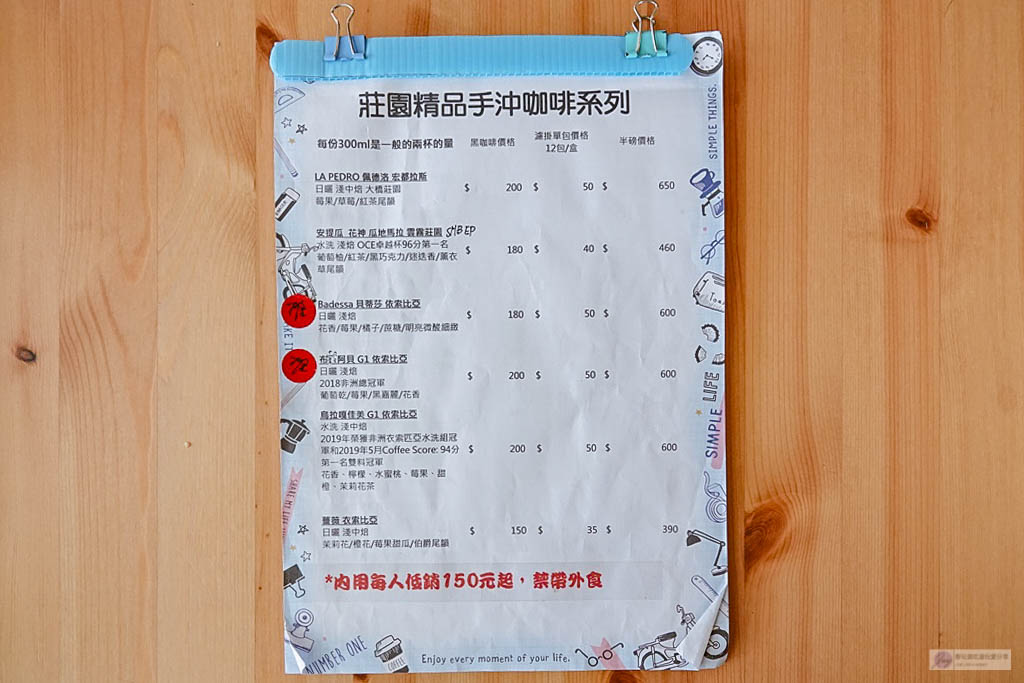 莊園精品手沖咖啡系列
每份300ml是一般的兩杯的量 黑咖啡價格 濾掛單包價格 12包/盒 半磅價格
LA PEDRO 佩德洛 宏都拉斯
日曬 淺中焙 大橋莊園 $ 200 $ 50 $ 650
莓果/草莓/紅茶尾韻
安提瓜 花神 瓜地馬拉 雲霧莊園 SHB EP
水洗 淺焙 OCE卓越杯96分第一名 $ 180 $ 40 $ 460
葡萄柚/紅茶/黑巧克力/迷迭香/薰衣
草尾韻
Badessa 貝蒂莎 依索比亞
日曬 淺焙 $ 180 $ 50 $ 600
花香/莓果/橘子/蔗糖/明亮微酸細緻
阿貝 G1 依索比亞
日曬 淺焙 $ 200 $ 50 $ 600
2018非洲總冠軍
葡萄乾/莓果/黑嘉麗/花香
烏拉嘎佳美 G1 依索比亞
水洗 淺中焙
2019年榮獲非洲衣索匹亞水洗組冠
軍和2019年5月Coffee Score: 94分 $ 200 $ 50 $ 600
第一名雙料冠軍
花香、檸檬、水蜜桃、莓果、甜
橙、茉莉花茶
薔薇 衣索比亞
日曬 淺中焙 $ 150 $ 35 $ 390
茉莉花/橙花/莓果甜瓜/伯爵尾韻
*內用每人低銷150元起，禁帶外食
SIMPLE THINGS.
SIMPLE LIFE
NUMBER ONE
COFFEE
Enjoy every moment of your life.